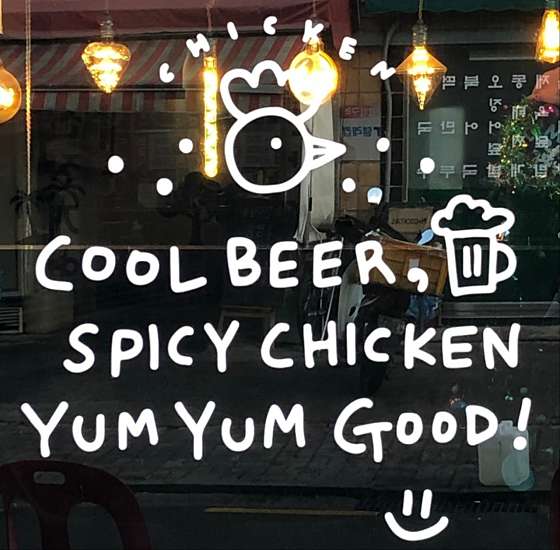 CHICKEN
COOL BEER,
SPICY CHICKEN
YUM YUM GOOD!